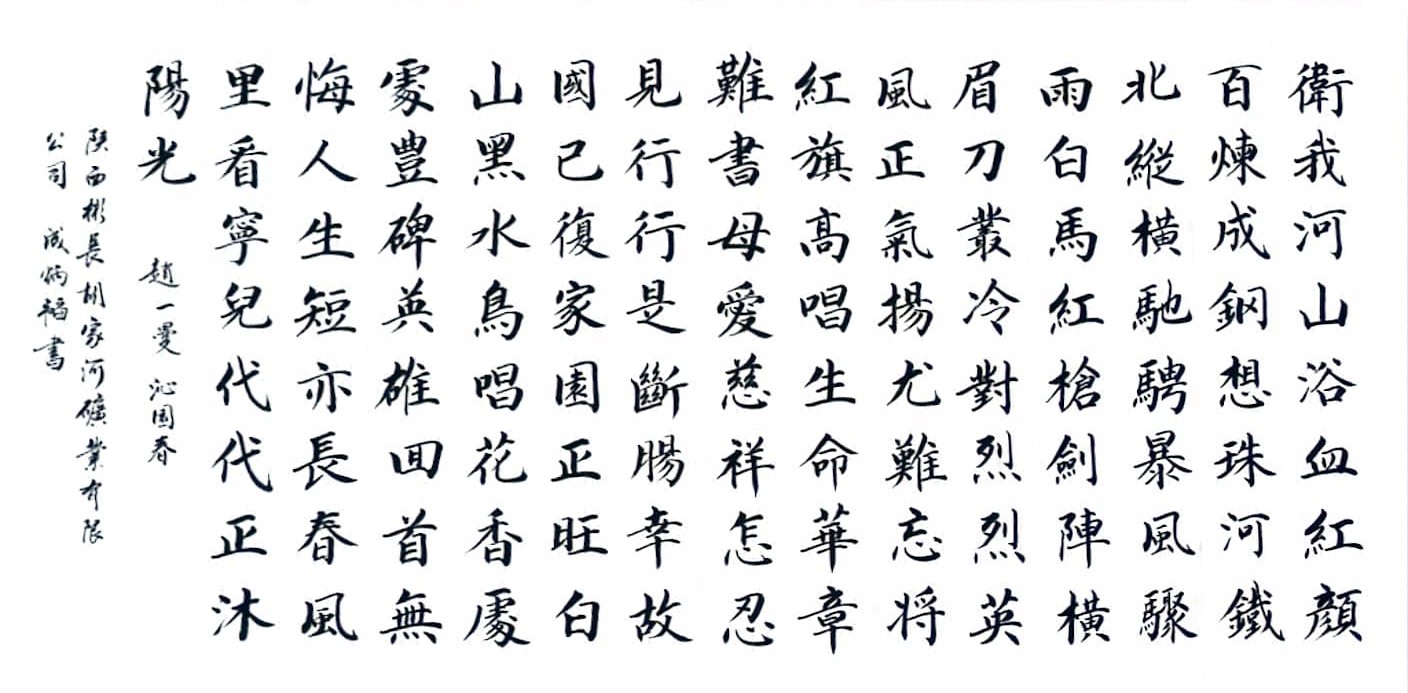 衛我河山浴血紅顔
百煉成鋼想珠河鐵
北縱橫馳騁暴風驟
雨白馬紅槍劍陣橫
眉刀叢冷對烈烈英
風正氣揚尤難忘将
紅旗高唱生命華章
難書母愛慈祥怎忍
見行行是斷腸幸故
國已復家園正旺白
山黑水鳥唱花香處
處豊碑英雄回首無
悔人生短亦長春風
里看寧兒代代正沐
陽光
趙一曼 沁園春
陝西彬長胡家河礦業有限
公司 成炳韜書